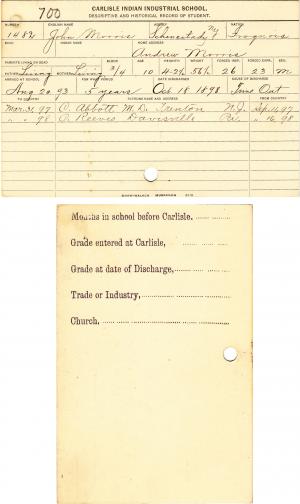 700
CARLISLE INDIAN INDUSTRIAL SCHOOL.
DESCRIPTIVE AND HISTORICAL RECORD OF STUDENT.
NUMBER ENGLISH NAME AGENCY NATION
1482 John Morris Schenectady N.Y. Iroquois
BAND INDIAN NAME HOME ADDRESS
Andrew Morris
PARENTS LIVING OR DEAD BLOOD AGE HEIGHT WEIGHT FORCED INSP. FORCED EXPR. SEX
FATHER Living MOTHER Living 3/4 10 4-2½ 56½ 26 23 M
ARRIVED AT SCHOOL FOR WHAT PERIOD DATE DISCHARGED CAUSE OF DISCHARGE
Aug 20 93 5 years Oct 18 1898 Time Out
TO COUNTRY PATRONS NAME AND ADDRESS FROM COUNTRY
Mar 31, 97 C. Abbott M.D. Trenton N.J. Sep 11, 97
" " 98 O. Reeves Davisville Pa. " 16 98
Months in school before Carlisle,
Grade entered at Carlisle,
Grade at date of Discharge,
Trade or Industry,
Church,